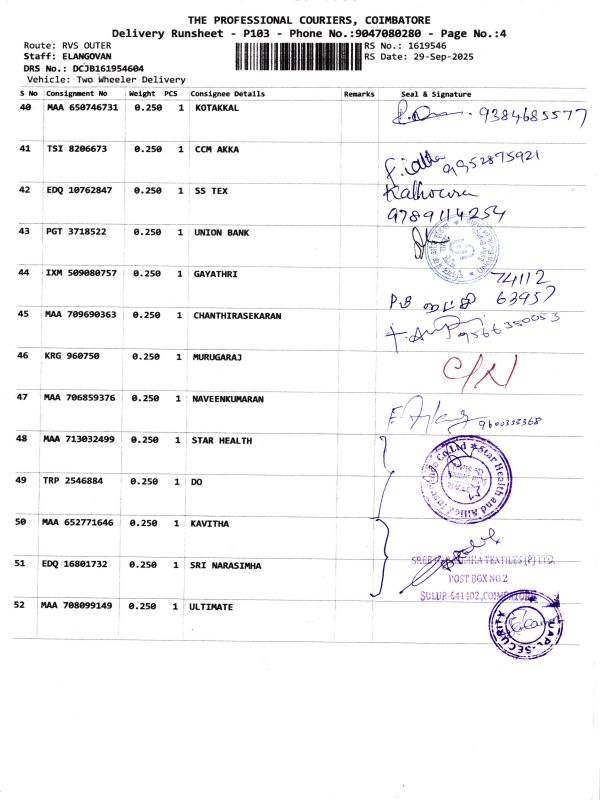 THE PROFESSIONAL COURIERS, COIMBATORE
Delivery Runsheet - P103 - Phone No.:9047080280 - Page No.:4
Route: RVS OUTER RS No.: 1619546
Staff: ELANGOVAN RS Date: 29-Sep-2025
DRS No.: DCJB161954604
Vehicle: Two Wheeler Delivery
S No Consignment No Weight PCS Consignee Details Remarks Seal & Signature
40 MAA 650746731 0.250 1 KOTAKKAL 9384685577
41 TSI 8206673 0.250 1 CCM AKKA 9952875921
42 EDQ 10762847 0.250 1 SS TEX
9789114254
43 PGT 3718522 0.250 1 UNION BANK
44 IXM 509080757 0.250 1 GAYATHRI 74112
63957
45 MAA 709690363 0.250 1 CHANTHIRASEKARAN 9566350053
46 KRG 960750 0.250 1 MURUGARAJ C/N
47 MAA 706859376 0.250 1 NAVEENKUMARAN 9600338368
48 MAA 713032499 0.250 1 STAR HEALTH Star Health and Allied Insurance Co Ltd
49 TRP 2546884 0.250 1 DO
50 MAA 652771646 0.250 1 KAVITHA
51 EDQ 16801732 0.250 1 SRI NARASIMHA TEXTILES (P) LTD.
POST BOX NO.2
SULUR-641402, COIMBATORE
52 MAA 708099149 0.250 1 ULTIMATE SECURITY